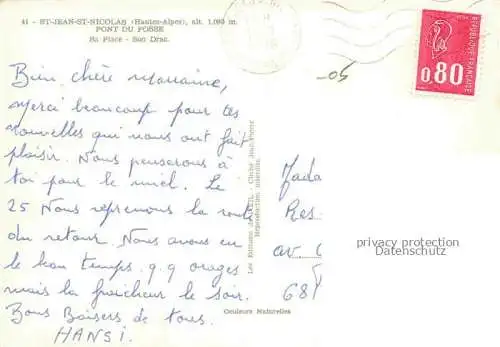 41 - ST-JEAN-ST-NICOLAS (Hautes-Alpes), alt. 1.080 m.
PONT DU FOSSE
Sa Place - Son Drac.
Bien chère marraine,
Merci beaucoup pour tes
nouvelles qui nous ont fait
plaisir. Nous penserons à
toi pour le miel. Le
25 Nous reprenons la route
du retour. Nous avons eu
le beau temps q.q orages
mais la fraicheur le soir.
Bons Baisers de tous.
HANSI.
Reproduction interdite.
Couleurs Naturelles
05
0.80
REPUBLIQUE FRANÇAISE
Mada
Res
av
68
privacy protection
Datenschutz